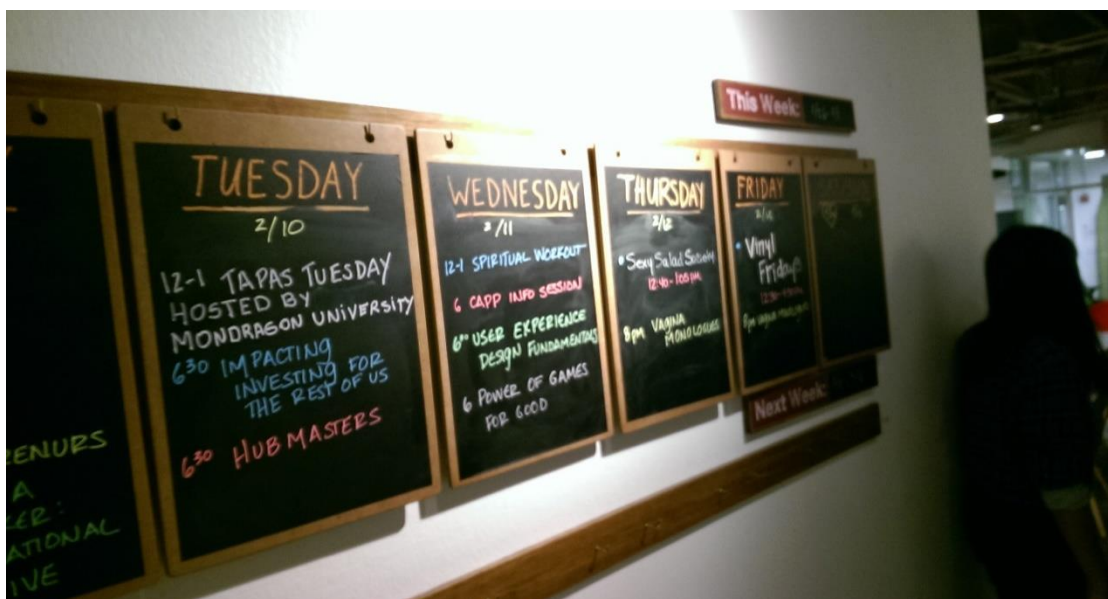 ENURS
A
ER:
ATIONAL
IVE
TUESDAY
2/10
12-1 TAPAS TUESDAY
HOSTED BY
MONDRAGON UNIVERSITY
6³⁰ IMPACTING
INVESTING FOR
THE REST OF US
6³⁰ HUB MASTERS
WEDNESDAY
2/11
12-1 SPIRITUAL WORKOUT
6 CAPP INFO SESSION
USER EXPERIENCE
DESIGN FUNDAMENTALS
6 POWER OF GAMES
FOR GOOD
THURSDAY
2/12
Sexy Salad Society
8pm VAGINA
MONOLOGUES
FRIDAY
Vinyl
Fridays
8pm vagina
This Week:
Next Week: